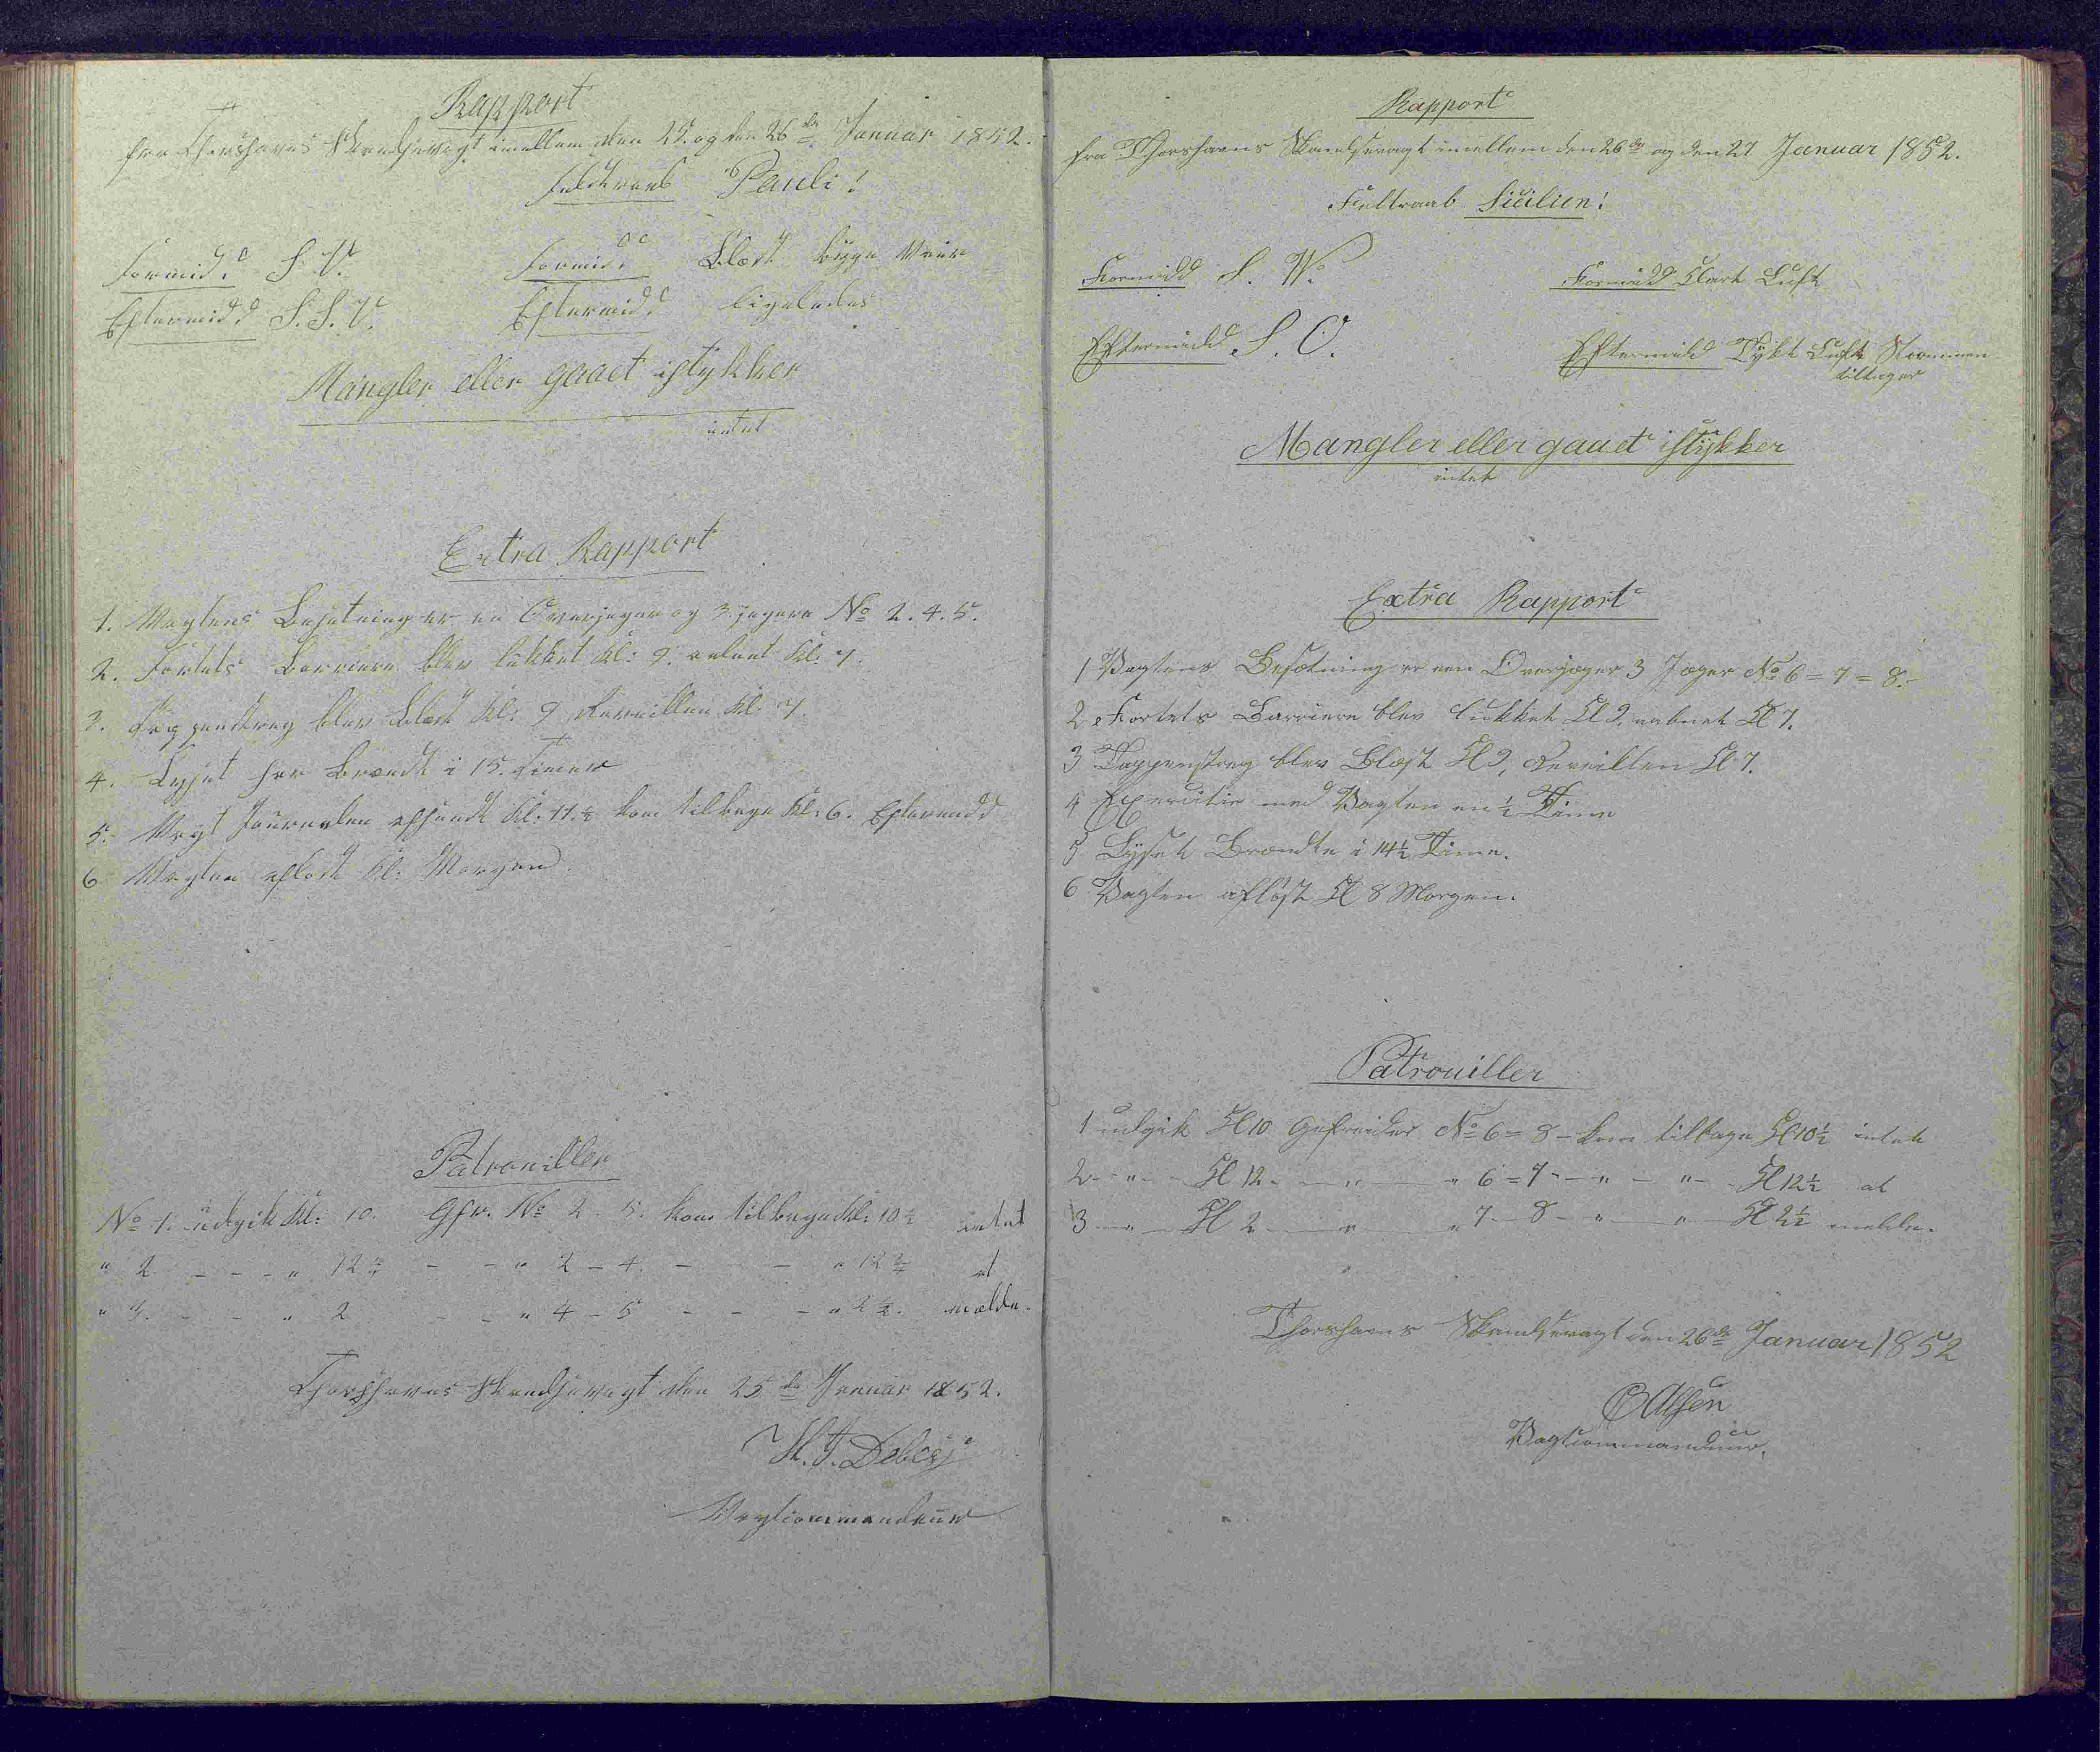 Rapport
fra Thorshavns Skandsevagt imellem den 25. og den 26de Januar 1852.
Feldtraab Pauli!
Formid.d S. V. Formid.d Blæst byge Veir
Eftermid.d S. S. V. Eftermid.d ligeledes
Mangler eller gaaet istykker
intet
Extra Rapport
1. Vagtens Besetning er en Overjeger og 3 jegere No 2. 4. 5.
2. Fortets Barriere blev lukket Kl: 9. aabnet Kl: 7.
3. Tappenstreg blev Blæst Kl: 9 Reveillen Kl: 7.
4. Lyset har brændt i 15. Timer
5. Vagt Journalen afsendt Kl: 11.½ kom tilbage Kl: 6. Eftermidd
6 Vagten afløst Kl: Morgen.
Patrouiller
No 1. udgik Kl: 10. Gfr. No 2. 5. kom tilbage Kl: 10½ intet
" 2 - - - " 12 - - " 2 - 4. - - - " 12 at
" 3. - - " 2 - - " 4 - 5 - - - " 2½. mælde.
Thorshavns Skandsevagt den 25de Januar 1852.
Debes
Vagtcommandeur
Rapport
fra Thorshavns Skandsevagt imellem den 26de og den 27 Januar 1852.
Feltraab Sicilien!
Formidd S. W. Formidd Klart Luft
Eftermidd S. O. Eftermidd Tykt Luft Strømmen
tiltager
Mangler eller gaaet istykker
intet
Extra Rapport
1 Vagtens Besætning er en Overjæger 3 Jæger No 6 = 7 = 8.
2 Fortets Barriere blev lukket Kl 9, aabnet Kl 7.
3 Tappenstreg blev Blæst Kl 9, Reveillen Kl 7.
4 Exercitie med Vagten en ½ Time
5 Lyset Brændte i 14½ Time.
6 Vagten afløst Kl 8 Morgen.
Patrouiller
1 udgik Kl 10 Gefreider No 6 = 8 - kom tilbage Kl 10½ intet
2 - " - Kl 12 - " - " 6 = 7 - " - " - Kl 12½ at
3 - " - Kl 2 - " - " 7 - 8 - " - " Kl 2½ melde.
Thorshavns Skandsevagt den 26de Januar 1852
Olsen
Vagtcommandeur.